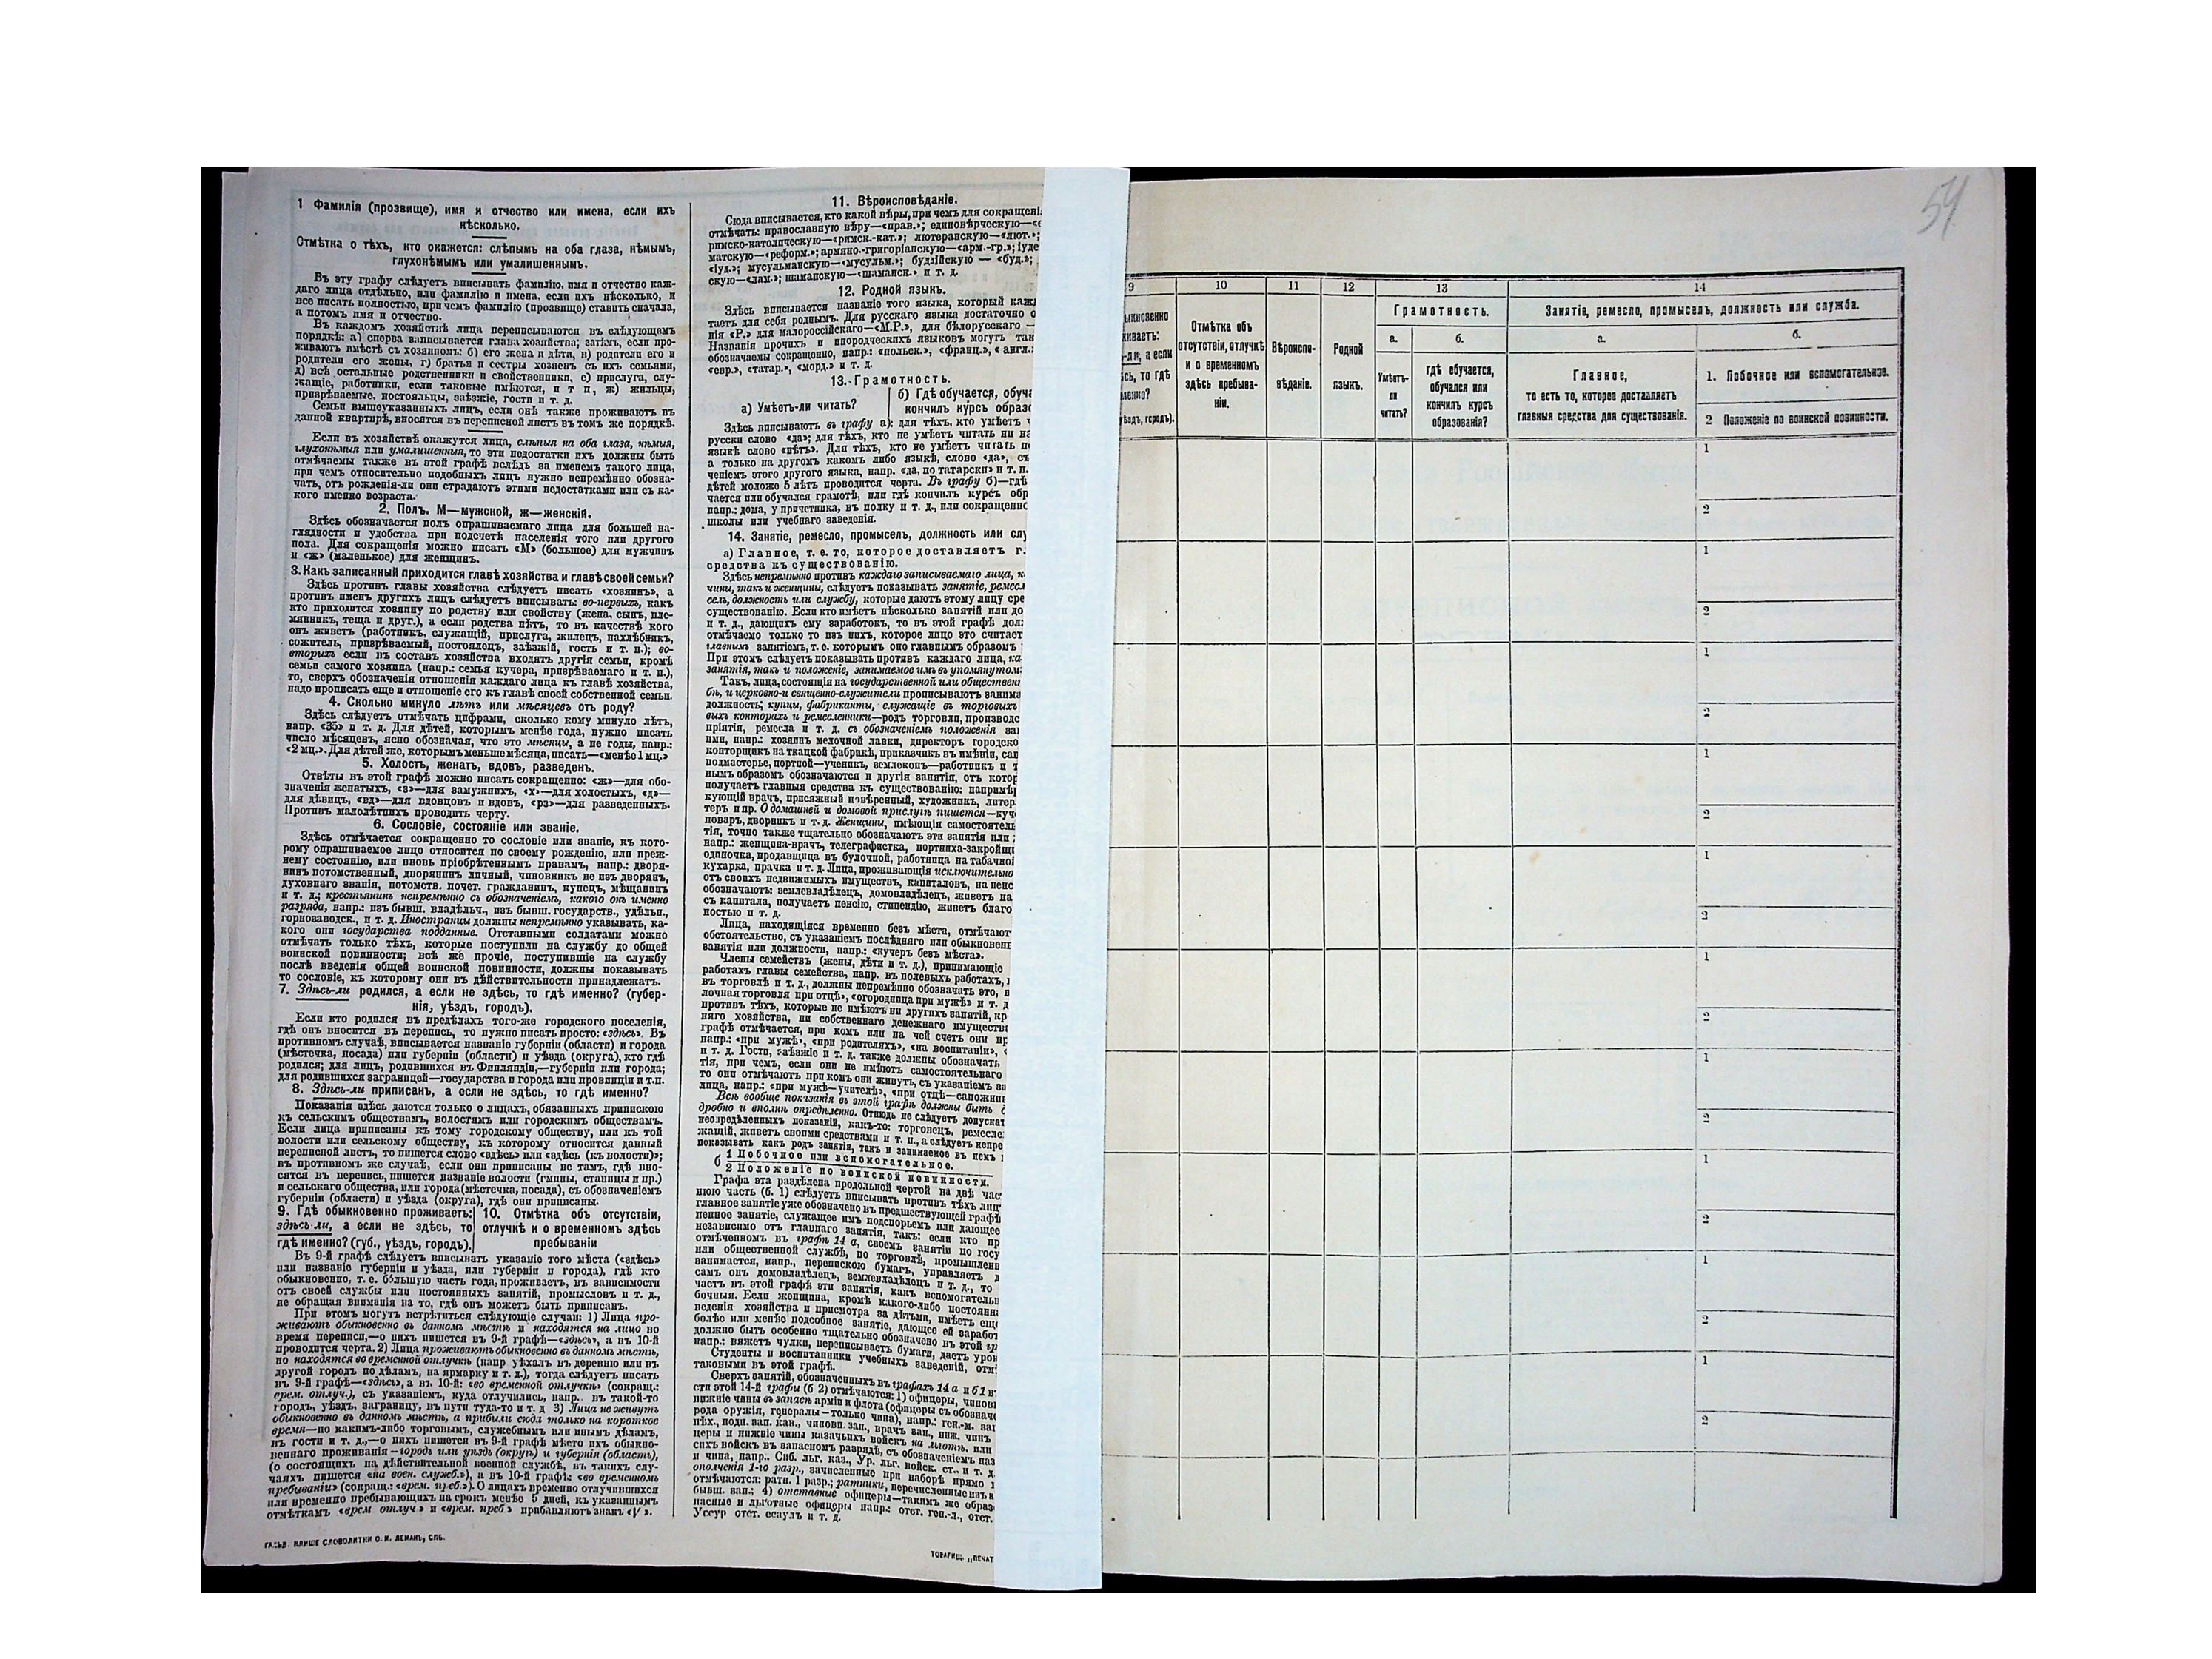 1 Фамилія (прозвище), имя и отчество или имена, если ихъ
нѣсколько.
Отмѣтка о тѣхъ, кто окажется: слѣпымъ на оба глаза, нѣмымъ,
глухонѣмымъ или умалишеннымъ.
Въ эту графу слѣдуетъ вписывать фамилію, имя и отчество каж-
даго лица отдѣльно, или фамилію и имена, если ихъ нѣсколько, и
все писать полностью, при чемъ фамилію (прозвище) ставить сначала,
а потомъ имя и отчество.
Въ каждомъ хозяйствѣ лица переписываются въ слѣдующемъ
порядкѣ: а) сперва записывается глава хозяйства; затѣмъ, если про-
живаютъ вмѣстѣ съ хозяиномъ: б) его жена и дѣти, в) родители его и
родители его жены, г) братья и сестры хозяевъ съ ихъ семьями,
д) всѣ остальные родственники и свойственники, е) прислуга, слу-
жащіе, работники, если таковые имѣются, и т п, ж) жильцы,
призрѣваемые, постояльцы, заѣзжіе, гости и т. п.
Семьи вышеуказанныхъ лицъ, если онѣ также проживаютъ въ
данной квартирѣ, вносятся въ переписной листъ въ томъ же порядкѣ.
Если въ хозяйствѣ окажутся лица, слѣпыя на оба глаза, нѣмыя,
глухонѣмыя или умалишенныя, то эти недостатки ихъ должны быть
отмѣчаемы также въ этой графѣ вслѣдъ за именемъ такого лица,
при чемъ относительно подобныхъ лицъ нужно непремѣнно обозна-
чать, отъ рожденія-ли они страдаютъ этими недостатками или съ ка-
кого именно возраста.
2. Полъ. М—мужской, ж—женскій.
Здѣсь обозначается полъ опрашиваемаго лица для большей на-
глядности и удобства при подсчетѣ населенія того или другого
пола. Для сокращенія можно писать «М» (большое) для мужчинъ
и «ж» (маленькое) для женщинъ.
3. Какъ записанный приходится главѣ хозяйства и главѣ своей семьи?
Здѣсь противъ главы хозяйства слѣдуетъ писать «хозяинъ», а
противъ именъ другихъ лицъ слѣдуетъ вписывать: во-первыхъ, какъ
кто приходится хозяину по родству или свойству (жена, сынъ, пле-
мянникъ, теща и друг.), а если родства нѣтъ, то въ качествѣ кого
онъ живетъ (работникъ, служащій, прислуга, жилецъ, нахлѣбникъ,
сожитель, призрѣваемый, постоялецъ, заѣзжій, гость и т. п.); во-
вторыхъ если въ составъ хозяйства входятъ другія семьи, кромѣ
семьи самого хозяина (напр.: семья кучера, призрѣваемаго и т. п.),
то, сверхъ обозначенія отношенія каждаго лица къ главѣ хозяйства,
надо прописать еще и отношеніе его къ главѣ своей собственной семьи.
4. Сколько минуло лѣтъ или мѣсяцевъ отъ роду?
Здѣсь слѣдуетъ отмѣчать цифрами, сколько кому минуло лѣтъ,
напр. «35» и т. д. Для дѣтей, которымъ менѣе года, нужно писать
число мѣсяцевъ, ясно обозначая, что это мѣсяцы, а не годы, напр.:
«2 мц.». Для дѣтей же, которымъ меньше мѣсяца, писать—«менѣе 1 мц.»
5. Холостъ, женатъ, вдовъ, разведенъ.
Отвѣты въ этой графѣ можно писать сокращенно: «ж»—для обо-
значенія женатыхъ, «з»—для замужнихъ, «х»—для холостыхъ, «д»—
для дѣвицъ, «вд»—для вдовцовъ и вдовъ, «рз»—для разведенныхъ.
Противъ малолѣтнихъ проводить черту.
6. Сословіе, состояніе или званіе.
Здѣсь отмѣчается сокращенно то сословіе или званіе, къ кото-
рому опрашиваемое лицо относится по своему рожденію, или преж-
нему состоянію, или вновь пріобрѣтеннымъ правамъ, напр.: дворя-
нинъ потомственный, дворянинъ личный, чиновникъ не изъ дворянъ,
духовнаго званія, потомств. почет. гражданинъ, купецъ, мѣщанинъ
и т. д.; крестьянинъ непремѣнно съ обозначеніемъ, какого онъ именно
разряда, напр.: изъ бывш. владѣльч., изъ бывш. государств., удѣльн.,
горнозаводск., и т. д. Иностранцы должны непремѣнно указывать, ка-
кого они государства подданные. Отставными солдатами можно
отмѣчать только тѣхъ, которые поступили на службу до общей
воинской повинности; всѣ же прочіе, поступившіе на службу
послѣ введенія общей воинской повинности, должны показывать
то сословіе, къ которому они въ дѣйствительности принадлежатъ.
7. Здѣсь-ли родился, а если не здѣсь, то гдѣ именно? (губер-
нія, уѣздъ, городъ).
Если кто родился въ предѣлахъ того-же городского поселенія,
гдѣ онъ вносится въ перепись, то нужно писать просто: «здѣсь». Въ
противномъ случаѣ, вписывается названіе губерніи (области) и города
(мѣстечка, посада) или губерніи (области) и уѣзда (округа), кто гдѣ
родился; для лицъ, родившихся въ Финляндіи,—губерніи или города;
для родившихся заграницей—государства и города или провинціи и т.п.
8. Здѣсь-ли приписанъ, а если не здѣсь, то гдѣ именно?
Показанія здѣсь даются только о лицахъ, обязанныхъ припискою
къ сельскимъ обществамъ, волостямъ или городскимъ обществамъ.
Если лица приписаны къ тому городскому обществу, или къ той
волости или сельскому обществу, къ которому относится данный
переписной листъ, то пишется слово «здѣсь» или «здѣсь (къ волости)»;
въ противномъ же случаѣ, если они приписаны не тамъ, гдѣ вно-
сятся въ перепись, пишется названіе волости (гмины, станицы и пр.)
и сельскаго общества, или города (мѣстечка, посада), съ обозначеніемъ
губерніи (области) и уѣзда (округа), гдѣ они приписаны.
9. Гдѣ обыкновенно проживаетъ:
здѣсь-ли, а если не здѣсь, то
гдѣ именно? (губ., уѣздъ, городъ).
10. Отмѣтка объ отсутствіи,
отлучкѣ и о временномъ здѣсь
пребываніи
Въ 9-й графѣ слѣдуетъ вписывать указаніе того мѣста («здѣсь»
или названіе губерніи и уѣзда, или губерніи и города), гдѣ кто
обыкновенно, т. е. бо́льшую часть года, проживаетъ, въ зависимости
отъ своей службы или постоянныхъ занятій, промысловъ и т. д.,
не обращая вниманія на то, гдѣ онъ можетъ быть приписанъ.
При этомъ могутъ встрѣтиться слѣдующіе случаи: 1) Лица про-
живаютъ обыкновенно въ данномъ мѣстѣ и находятся на лицо во
время переписи,—о нихъ пишется въ 9-й графѣ—«здѣсь», а въ 10-й
проводится черта. 2) Лица проживаютъ обыкновенно въ данномъ мѣстѣ,
но находятся во временной отлучкѣ (напр уѣхалъ въ деревню или въ
другой городъ по дѣламъ, на ярмарку и т. д.), тогда слѣдуетъ писать
въ 9-й графѣ—«здѣсь», а въ 10-й: «во временной отлучкѣ» (сокращ.:
врем. отлуч.), съ указаніемъ, куда отлучились, напр.. въ такой-то
городъ, уѣздъ, заграницу, въ пути туда-то и т. д 3) Лица не живутъ
обыкновенно въ данномъ мѣстѣ, а прибыли сюда только на короткое
время—по какимъ-либо торговымъ, служебнымъ или инымъ дѣламъ,
въ гости и т. д.,—о нихъ пишется въ 9-й графѣ мѣсто ихъ обыкно-
веннаго проживанія—городъ или уѣздъ (округъ) и губернія (область),
(о состоящихъ на дѣйствительной военной службѣ, въ такихъ слу-
чаяхъ пишется «на воен. служб.»), а въ 10-й графѣ: «во временномъ
пребываніи» (сокращ.: «врем. преб.»). О лицахъ временно отлучившихся
или временно пребывающихъ на срокъ менѣе 5 дней, къ указаннымъ
отмѣткамъ «врем отлуч.» и «врем. преб.» прибавляютъ знакъ «V».
ГАЛЬВ. КЛИШЕ СЛОВОЛИТНИ О. И. ЛЕМАНЪ, СПБ.
11. Вѣроисповѣданіе.
Сюда вписывается, кто какой вѣры, при чемъ для сокращені
отмѣчать: православную вѣру—«прав.»; единовѣрческую—«е
римско-католическую—«римск.-кат.»; лютеранскую—«лют.»;
матскую—«реформ.»; армяно.-григоріанскую—«арм.-гр.»; іуде
«іуд.»; мусульманскую—«мусульм.»; буддійскую — «буд.»;
скую—«лам.»; шаманскую—«шаманск.» и т. д.
12. Родной языкъ.
Здѣсь вписывается названіе того языка, который кажд
таетъ для себя роднымъ. Для русскаго языка достаточно о
нія «Р.» для малороссійскаго—«М.Р.», для бѣлорусскаго —
Названія прочихъ и инородческихъ языковъ могутъ так
обозначаемы сокращенно, напр.: «польск.», «франц.», « англ.»
«евр.», «татар.», «морд.» и т. д.
13. Грамотность.
а) Умѣетъ-ли читать?
б) Гдѣ обучается, обуча
кончилъ курсъ образо
Здѣсь вписываютъ въ графу а): для тѣхъ, кто умѣетъ ч
русски слово «да»; для тѣхъ, кто не умѣетъ читать ни на
языкѣ слово «нѣтъ». Для тѣхъ, кто не умѣетъ читать п
а только на другомъ какомъ либо языкѣ, слово «да», съ
ченіемъ этого другого языка, напр. «да, по татарски» и т. п.
дѣтей моложе 5 лѣтъ проводится черта. Въ графу б)—гдѣ
чается или обучался грамотѣ, или гдѣ кончилъ курсъ обр
напр.: дома, у причетника, въ полку и т. д., или сокращенно
школы или учебнаго заведенія.
14. Занятіе, ремесло, промыселъ, должность или слу
а) Главное, т. е. то, которое доставляетъ г.
средства къ существованію.
Здѣсь непремѣнно противъ каждаго записываемаго лица, к
чины, такъ и женщины, слѣдуетъ показывать занятіе, ремесл
селъ, должность или службу, которые даютъ этому лицу сре
существованію. Если кто имѣетъ нѣсколько занятій или до
и т. д., дающихъ ему заработокъ, то въ этой графѣ дол
отмѣчаемо только то изъ нихъ, которое лицо это считает
главнымъ занятіемъ, т. е. которымъ оно главнымъ образомъ
При этомъ слѣдуетъ показывать противъ каждаго лица, ка
занятія, такъ и положеніе, занимаемое имъ въ упомянутом
Такъ, лица, состоящія на государственной или обществен
бѣ, и церковно-и священно-служители прописываютъ занима
должность; купцы, фабриканты, служащіе въ торговыхъ
выхъ конторахъ и ремесленники—родъ торговли, производс
пріятія, ремесла и т. д. съ обозначеніемъ положенія за
ими, напр.: хозяинъ мелочной лавки, директоръ городско
конторщикъ на ткацкой фабрикѣ, приказчикъ въ имѣніи, сап
подмастерье, портной—ученикъ, землекопъ—работникъ и т
нымъ образомъ обозначаются и другія занятія, отъ котор
получаетъ главныя средства къ существованію: напримѣр
кующій врачъ, присяжный повѣренный, художникъ, литер
теръ и пр. О домашней и домовой прислугѣ пишется—куч
поваръ, дворникъ и т. д. Женщины, имѣющія самостоятель
тія, точно также тщательно обозначаютъ эти занятія или
напр.: женщина-врачъ, телеграфистка, портниха-закройщи
одиночка, продавщица въ булочной, работница на табачной
кухарка, прачка и т. д. Лица, проживающія исключительно
отъ своихъ недвижимыхъ имуществъ, капиталовъ, на пенс
обозначаютъ: землевладѣлецъ, домовладѣлецъ, живетъ на
съ капитала, получаетъ пенсію, стипендію, живетъ благо
ностью и т. д.
Лица, находящіяся временно безъ мѣста, отмѣчают
обстоятельство, съ указаніемъ послѣдняго или обыкновен
занятія или должности, напр.: «кучеръ безъ мѣста».
Члены семействъ (жены, дѣти и т. д.), принимающіе
работахъ главы семейства, напр. въ полевыхъ работахъ,
въ торговлѣ и т. д., должны непремѣнно обозначать это, н
лочная торговля при отцѣ», «огородница при мужѣ» и т. д
противъ тѣхъ, которые не имѣютъ ни другихъ занятій, кр
няго хозяйства, ни собственнаго денежнаго имуществ
графѣ отмѣчается, при комъ или на чей счетъ они пр
напр.: «при мужѣ», «при родителяхъ», «на воспитаніи»,
и т. д. Гости, заѣзжіе и т. д. также должны обозначать
тія, при чемъ, если они не имѣютъ самостоятельнаго
то они отмѣчаютъ при комъ они живутъ, съ указаніемъ за
лица, напр.: «при мужѣ—учителѣ», «при отцѣ—сапожни
Всѣ вообще показанія въ этой графѣ должны быть
дробно и вполнѣ опредѣленно. Отнюдь не слѣдуетъ допускат
неопредѣленныхъ показаній, какъ-то: торговецъ, ремесле
жащій, живетъ своими средствами и т. п., а слѣдуетъ непре
показывать какъ родъ занятія, такъ и занимаемое въ немъ
б 1 Побочное или вспомогательное.
2 Положеніе по воинской повинности.
Графа эта раздѣлена продольной чертой на двѣ час
нюю часть (б. 1) слѣдуетъ вписывать противъ тѣхъ лиц
главное занятіе уже обозначено въ предшествующей графѣ
пенное занятіе, служащее имъ подспорьемъ или дающее
независимо отъ главнаго занятія, такъ: если кто пр
отмѣченномъ въ графѣ 14 а, своемъ занятіи по госу
или общественной службѣ, по торговлѣ, промышлен
занимается, напр., перепискою бумагъ, управляетъ д
самъ онъ домовладѣлецъ, землевладѣлецъ и т. д., то
частъ въ этой графѣ эти занятія, какъ вспомогатель
бочныя. Если женщина, кромѣ какого-либо постоянн
веденія хозяйства и присмотра за дѣтьми, имѣетъ ещ
болѣе или менѣе подсобное занятіе, дающее ей зарабо
должно быть особенно тщательно обозначено въ этой гр
напр.: вяжетъ чулки, переписываетъ бумаги, даетъ урок
Студенты и воспитанники учебныхъ заведеній, отм
таковыми въ этой графѣ.
Сверхъ занятій, обозначенныхъ въ графахъ 14 а и б 1 в
сти этой 14-й графы (б 2) отмѣчаются: 1) офицеры, чинов
нижніе чины въ запасѣ арміи и флота (офицеры съ обознач
рода оружія, генералы—только чина), напр.: ген.-м. за
пѣх., подп. зап. кав., чиновн. зап., врачъ зап., ниж. чинъ
церы и нижніе чины казачьихъ войскъ на льготѣ, или
скихъ войскъ въ запасномъ разрядѣ, съ обозначеніемъ наз
и чина, напр.. Сиб. льг. каз., Ур. льг. войск. ст.. и т. д
ополченія 1-го разр., зачисленные при наборѣ прямо
отмѣчаются: ратн. 1 разр.; ратники, перечисленные изъ
бывш. зап.; 4) отставные офицеры—такимъ же образ
пасные и льготные офицеры напр.: отст. ген.-л., отст.
Уссур отст. есаулъ и т. д.
ТОВАРИЩ. „ПЕЧАТ
54
9
10
11
12
13
14
ыкновенно
живаетъ:
-ли, а если
сь, то гдѣ
менно?
уѣздъ, городъ).
Отмѣтка объ
отсутствіи, отлучкѣ
и о временномъ
здѣсь пребыва-
ніи.
Вѣроиспо-
вѣданіе.
Родной
языкъ.
Грамотность.
а.
б.
Умѣетъ-
ли
читать?
гдѣ обучается,
обучался или
кончилъ курсъ
образованія?
Занятіе, ремесло, промыселъ, должность или служба.
а.
б.
Главное,
то есть то, которое доставляетъ
главныя средства для существованія.
1. Побочное или вспомогательное.
2 Положеніе по воинской повинности.
1
2
1
2
1
2
1
2
1
2
1
2
1
2
1
2
1
2
1
2